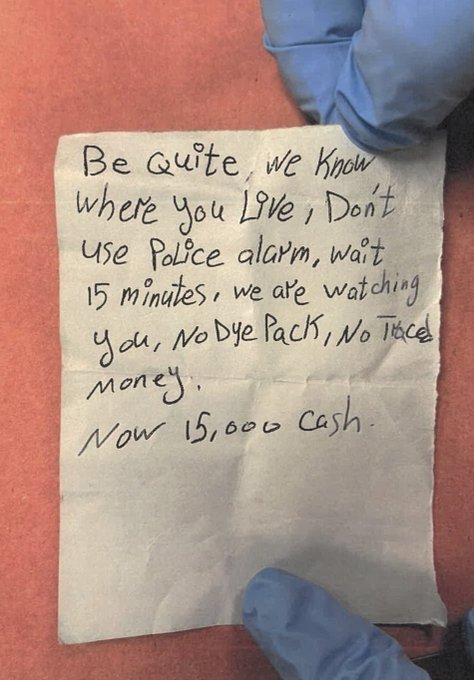 Be Quite, we Know
where you Live, Don't
use Police alarm, wait
15 minutes, we are watching
you, No Dye Pack, No Traced
money.
Now 15,000 cash.